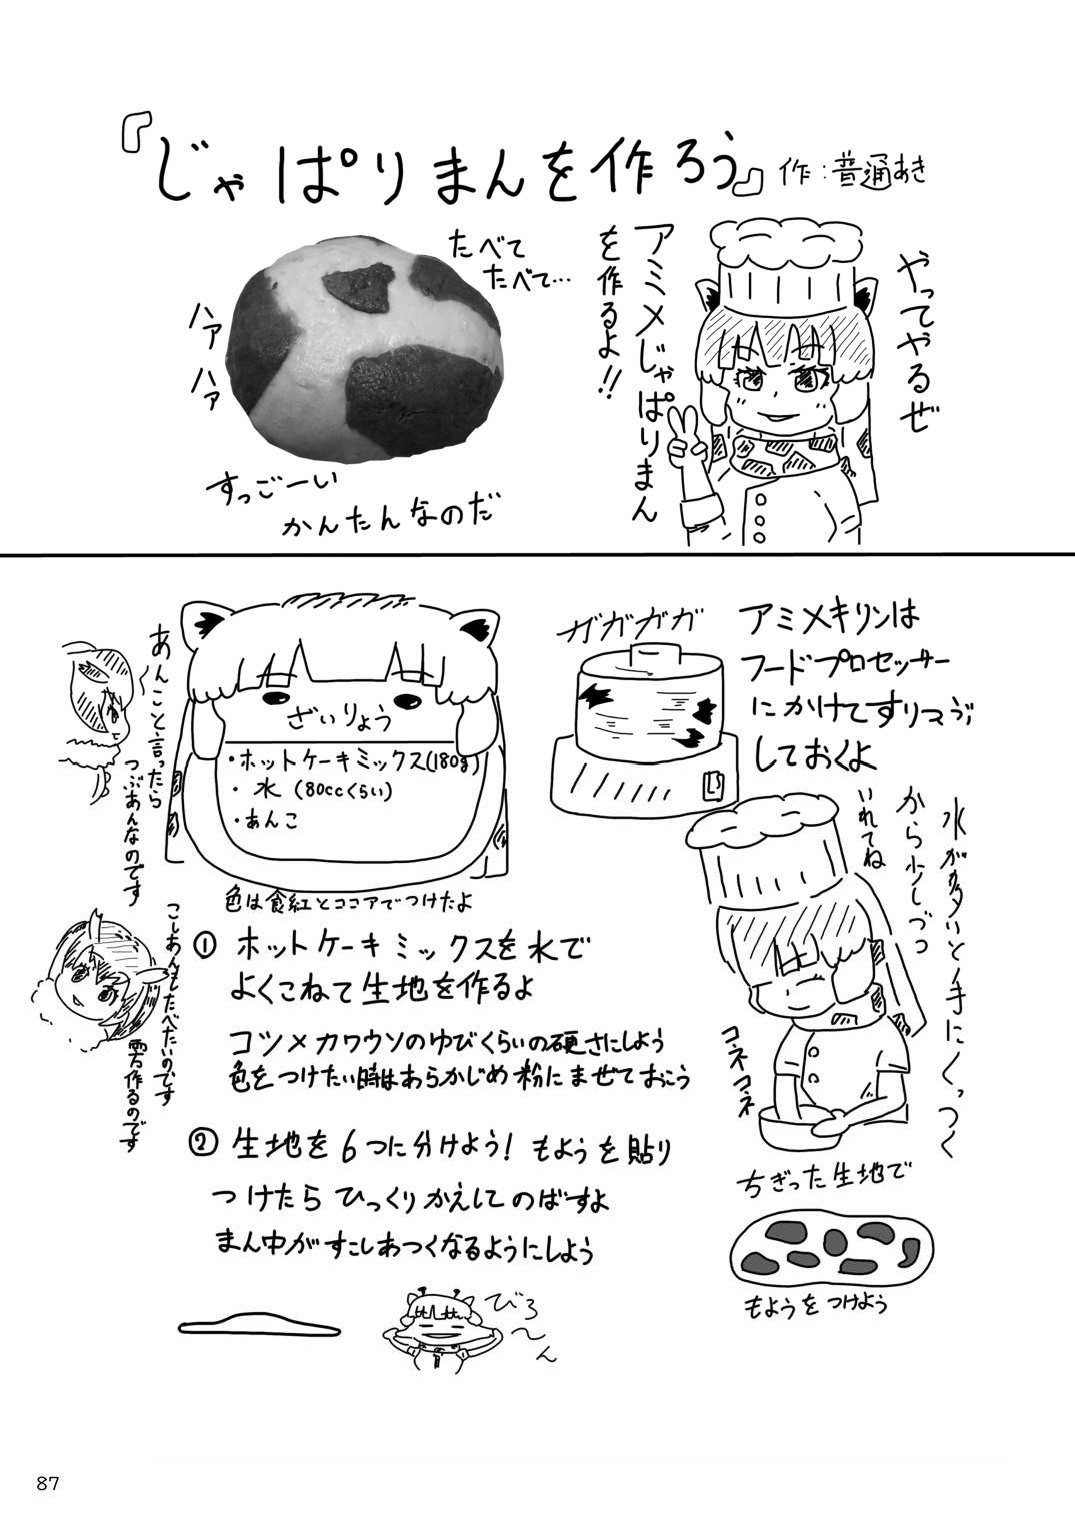 『じゃぱりまんを作ろう』作:普通あき
たべて
たべて…
ハァ
ハァ
すっごーい
かんたんなのだ
アミメじゃぱりまん
を作るよ!!
やってやるぜ
あんこと言ったら
つぶあんなのです
ざいりょう
・ホットケーキミックス(180g)
・水(80ccくらい)
・あんこ
色は食紅とココアでつけたよ
ガガガガ
アミメキリンは
フードプロセッサー
にかけてすりつぶ
しておくよ
水が多いと手にくっつく
から少しづつ
いれてね
コネコネ
こしあんもたべたいのです
作るのです
① ホットケーキミックスを水で
よくこねて生地を作るよ
コツメカワウソのゆびくらいの硬さにしよう
色をつけたい時はあらかじめ粉にまぜておこう
② 生地を6つに分けよう!もようを貼り
つけたらひっくりかえしてのばすよ
まん中がすこしあつくなるようにしよう
ちぎった生地で
もようをつけよう
びろ
〜
ん
87